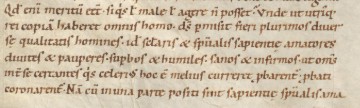 Qd̄ enī meritū eēt siqs l̄ male l̄ aggre n̄ posset. Unde ut utriq
rei copiā haberet omnis homo. ds̄ pmisit fieri plurimos diver
se qualitatis homines. id est laris & spūalis sapientie amatores
divites & pauperes. supbos & humiles. sanos & infirmos. ut om̄s
int se certantes qs celeri hoc ē melius curreret. pbarent. pbati
coronarent. Nā cū in una parte positi sint sapientie spūalis ama